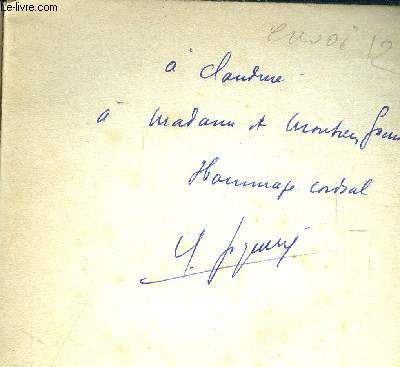 Le-livre.com
envoi
à Claudine
à Madame et Monsieur
Hommage cordial